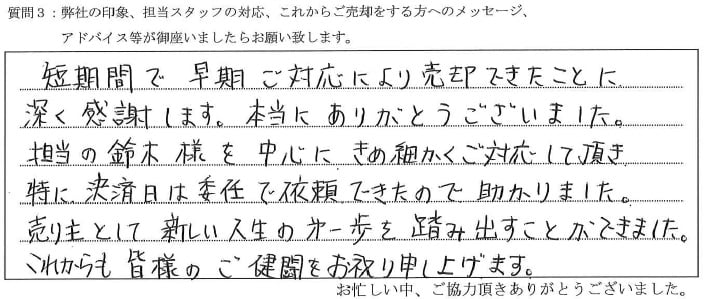 質問３：弊社の印象、担当スタッフの対応、これからご売却をする方へのメッセージ、
アドバイス等が御座いましたらお願い致します。
短期間で早期ご対応により売却できたことに
深く感謝します。本当にありがとうございました。
担当の鈴木様を中心にきめ細かくご対応して頂き
特に決済日は委任で依頼できたので助かりました。
売り主として新しい人生の第一歩を踏み出すことができました。
これからも皆様のご健闘をお祈り申し上げます。
お忙しい中、ご協力頂きありがとうございました。